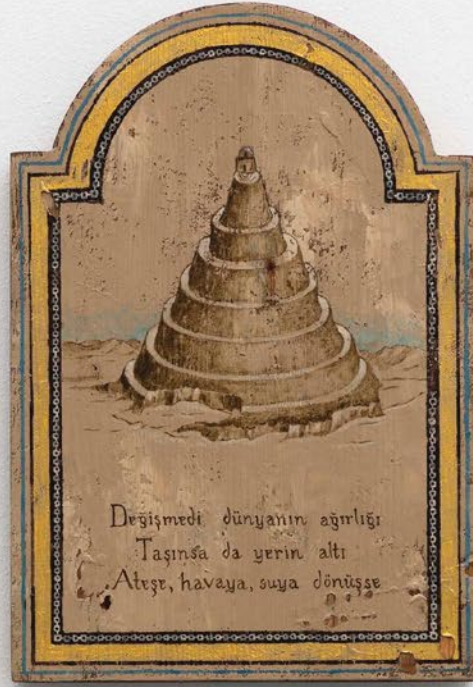 Değişmedi dünyanın ağırlığı
Taşınsa da yerin altı
Ateşe, havaya, suya dönüşse